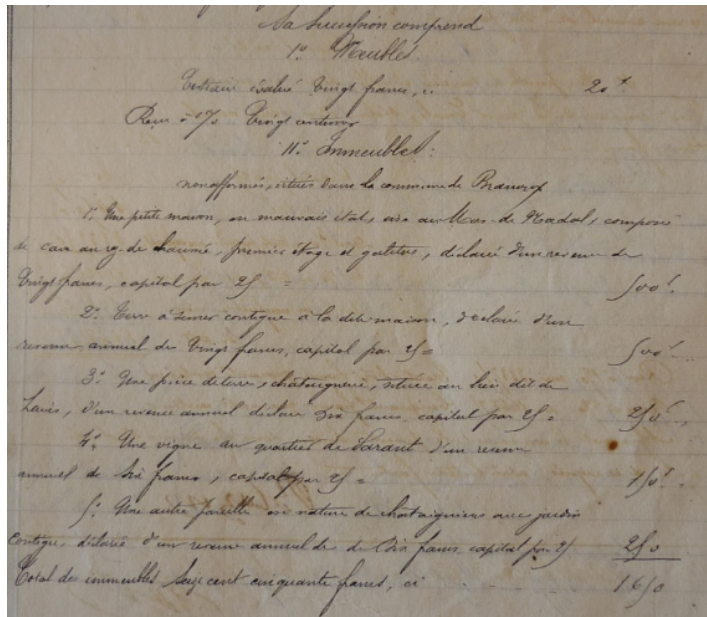 Sa Succession comprend
1º Meubles
évalué Vingt francs, ci 20 f.
à 1% Vingt centimes
11º Immeubles:
non affermés, situés dans la commune de
1º Une petite maison, en mauvais état, sise au Mas de Nadal, composé
de cave au rez de chaussée, premier étage et galetas, déclaré d'un revenu de
Vingt francs, capital par 25 = 500 f.
2º Terre à semer contigue à la dite maison, déclarée d'un
revenu annuel de Vingt francs, capital par 25 = 500 f.
3º Une pièce de terre, châtaigneraie, située au lieu dit de
d'un revenu annuel déclaré Dix francs, capital par 25 = 250 f.
4º Une vigne au quartier de d'un revenu
annuel de Six francs, capital par 25 = 150 f.
5º Une autre parcelle en nature de chataigniers avec jardin
contigu, déclaré d'un revenu annuel de de Dix francs capital par 25 250
Total des immeubles Seize cent cinquante francs, ci 1650